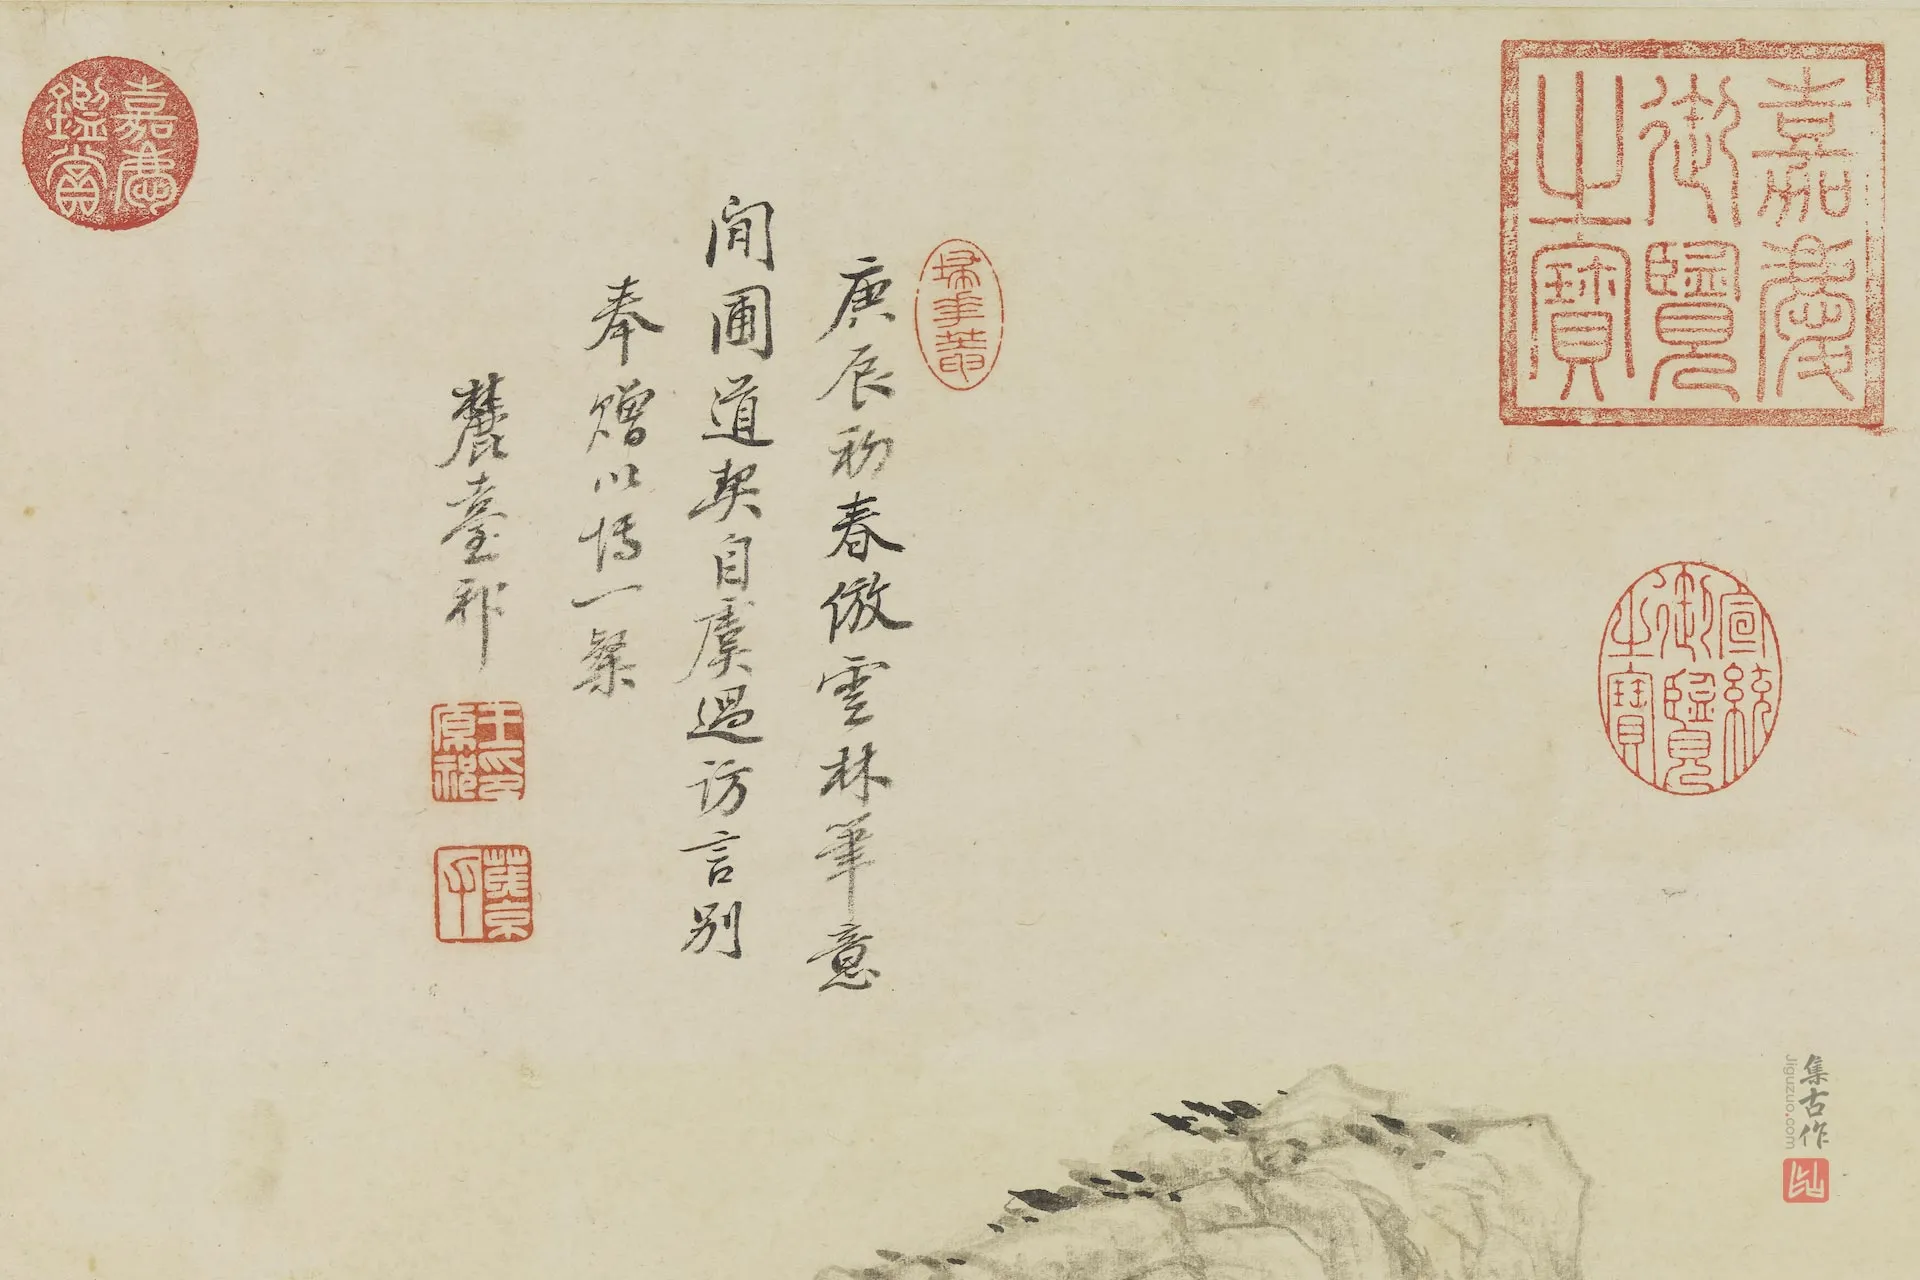 嘉慶御覽之寶
宣統御覽之寶
掃花菴
庚辰初春倣雲林筆意
閒圃道契自虞過訪言別
奉贈以博一粲
麓臺祁
王原祁印
茂京
嘉慶鑑賞
集古作
Jiguzuo.com